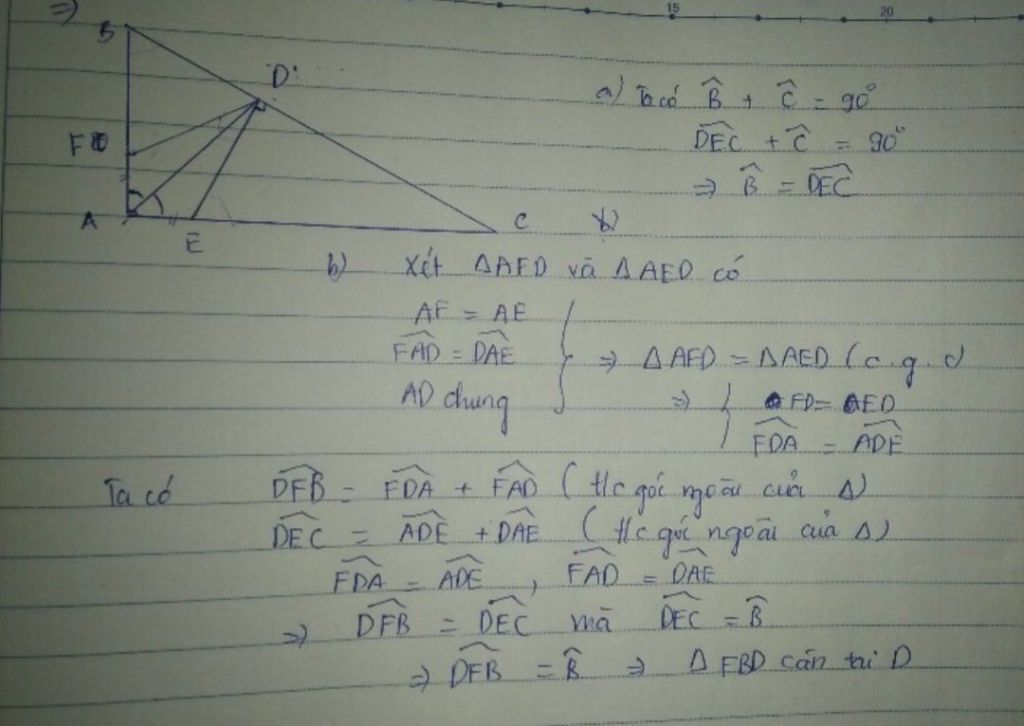 ⇒
15 20
B
D
F
A
E
C
a) Ta có B̂ + Ĉ = 90°
DEC^ + Ĉ = 90°
⇒ B̂ = DEC^
b) Xét ΔAFD và ΔAED có
AF = AE
FAD^ = DAE^ ⇒ ΔAFD = ΔAED (c.g.c)
AD chung ⇒ { FD = ED
FDA^ = ADE^
Ta có DFB^ = FDA^ + FAD^ (t/c góc ngoài của Δ)
DEC^ = ADE^ + DAE^ (t/c góc ngoài của Δ)
FDA^ = ADE^ , FAD^ = DAE^
⇒ DFB^ = DEC^ mà DEC^ = B̂
⇒ DFB^ = B̂ ⇒ Δ FBD cân tại D